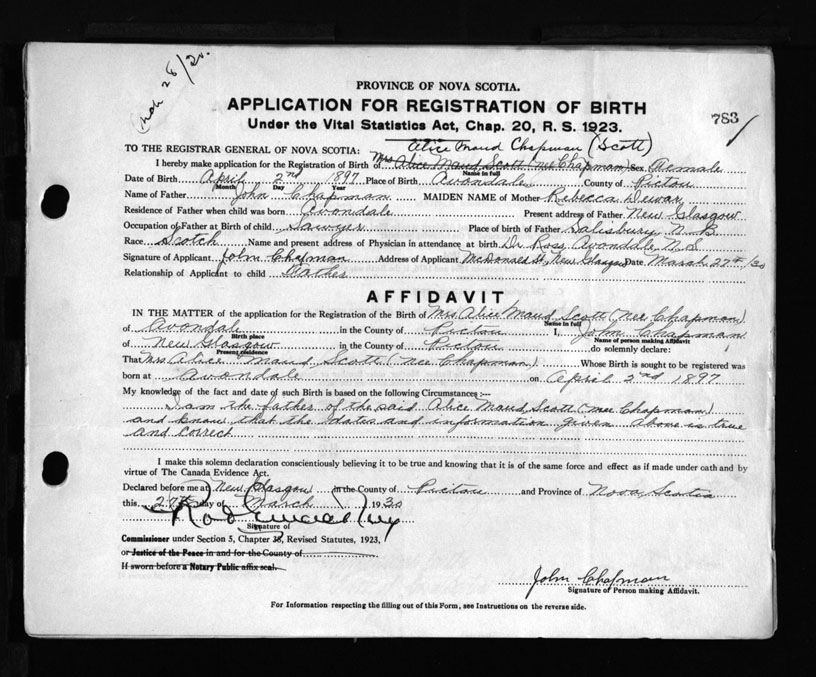 Mch 28/30.
PROVINCE OF NOVA SCOTIA.
APPLICATION FOR REGISTRATION OF BIRTH
Under the Vital Statistics Act, Chap. 20, R. S. 1923.
783
Alice Maud Chapman (Scott)
TO THE REGISTRAR GENERAL OF NOVA SCOTIA:
I hereby make application for the Registration of Birth of Mrs Alice Maud Scott (nee Chapman) Sex Female
Name in full
Date of Birth April 2nd 1897 Place of Birth Avondale County of Pictou
Month Day Year
Name of Father John Chapman MAIDEN NAME of Mother Rebecca Dewar
Residence of Father when child was born Avondale Present address of Father New Glasgow
Occupation of Father at Birth of child Sawyer Place of birth of Father Salisbury N. B.
Race Scotch Name and present address of Physician in attendance at birth Dr Ross Avondale N.S.
Signature of Applicant John Chapman Address of Applicant McDonald St, New Glasgow Date March 27th /30
Relationship of Applicant to child Father
AFFIDAVIT
IN THE MATTER of the application for the Registration of the Birth of Mrs. Alice Maud Scott (nee Chapman)
Name in full
of Avondale in the County of Pictou I, John Chapman
Birth place Name of person making Affidavit
of New Glasgow in the County of Pictou do solemnly declare:
Present residence
That Mrs Alice Maud Scott (nee Chapman) Whose Birth is sought to be registered was
born at Avondale on April 2nd 1897
My knowledge of the fact and date of such Birth is based on the following Circumstances :—
I am the father of the said Alice Maud Scott (nee Chapman)
and know that the dates and information given above is true
and correct
I make this solemn declaration conscientiously believing it to be true and knowing that it is of the same force and effect as if made under oath and by
virtue of The Canada Evidence Act.
Declared before me at New Glasgow in the County of Pictou and Province of Nova Scotia
this 27th day of March 1930
Signature of
Commissioner under Section 5, Chapter 38, Revised Statutes, 1923,
or Justice of the Peace in and for the County of
If sworn before a Notary Public affix seal.
John Chapman
Signature of Person making Affidavit.
For Information respecting the filling out of this Form, see Instructions on the reverse side.